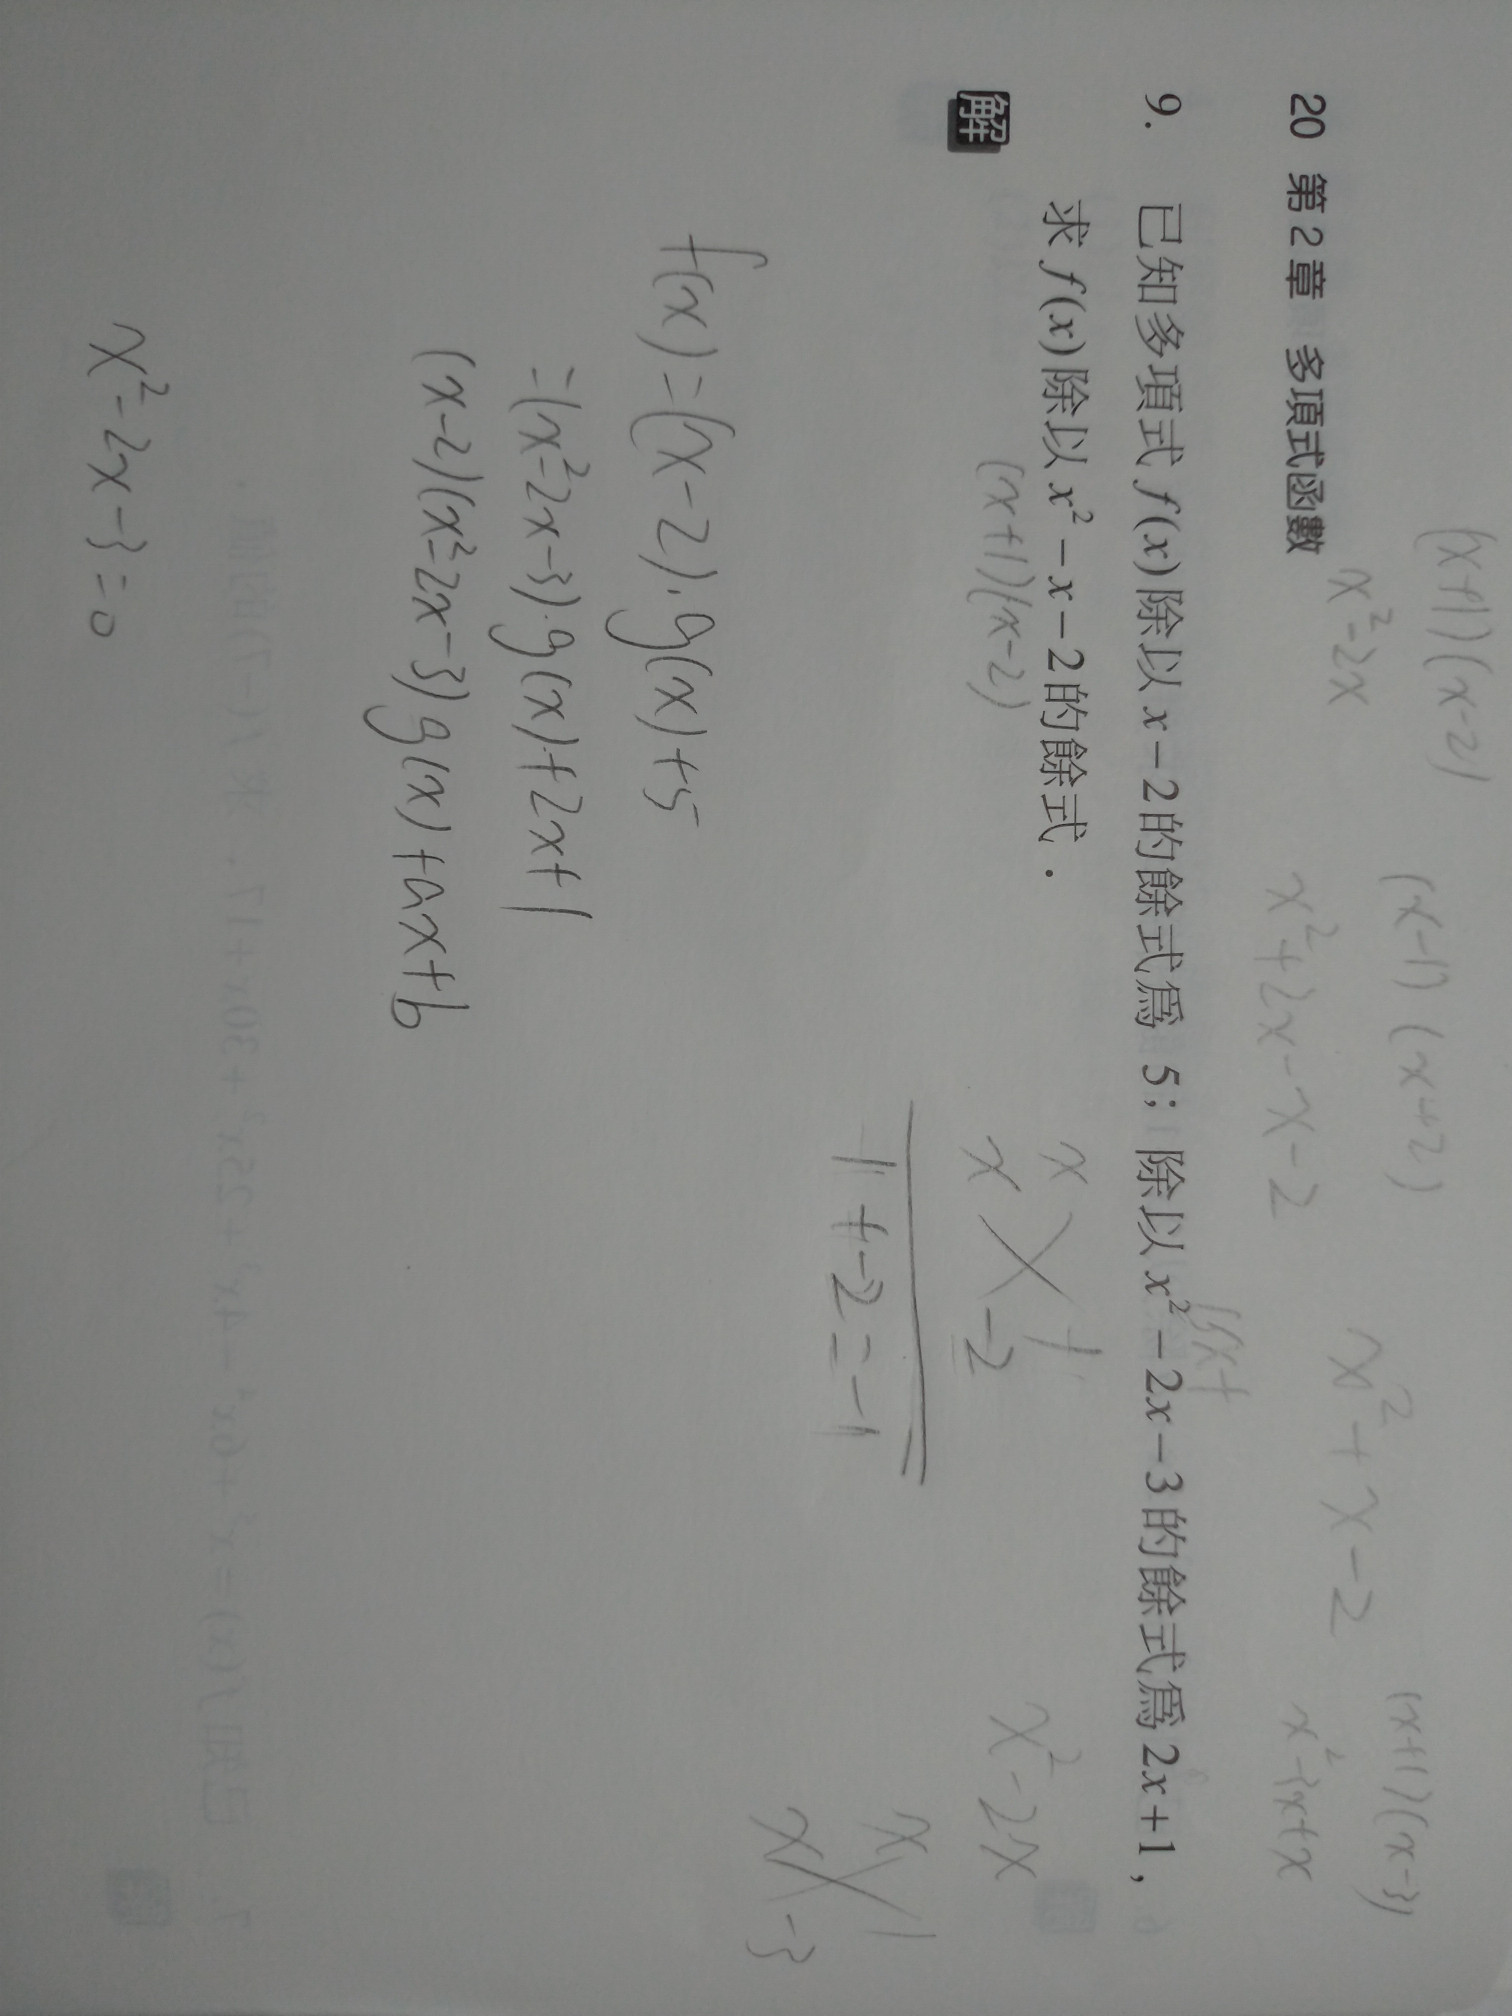 (x+1)(x-2)
(x-1)(x+2)
(x+1)(x-3)
x²-2x
x²+2x-x-2
x²+x-2
x²-3x+x
20 第2章 多項式函數
9. 已知多項式 f(x)除以 x−2的餘式為 5;除以 x²−2x−3的餘式為 2x+1,
求 f(x)除以 x²−x−2的餘式.
(x+1)(x-2)
解
x 1
x -2
1+-2=-1
x²-2x
x 1
x -3
f(x)=(x-2).g(x)+5
=(x²-2x-3).g(x)+2x+1
(x-2)(x²-2x-3)g(x)+ax+b
x²-2x-3=0